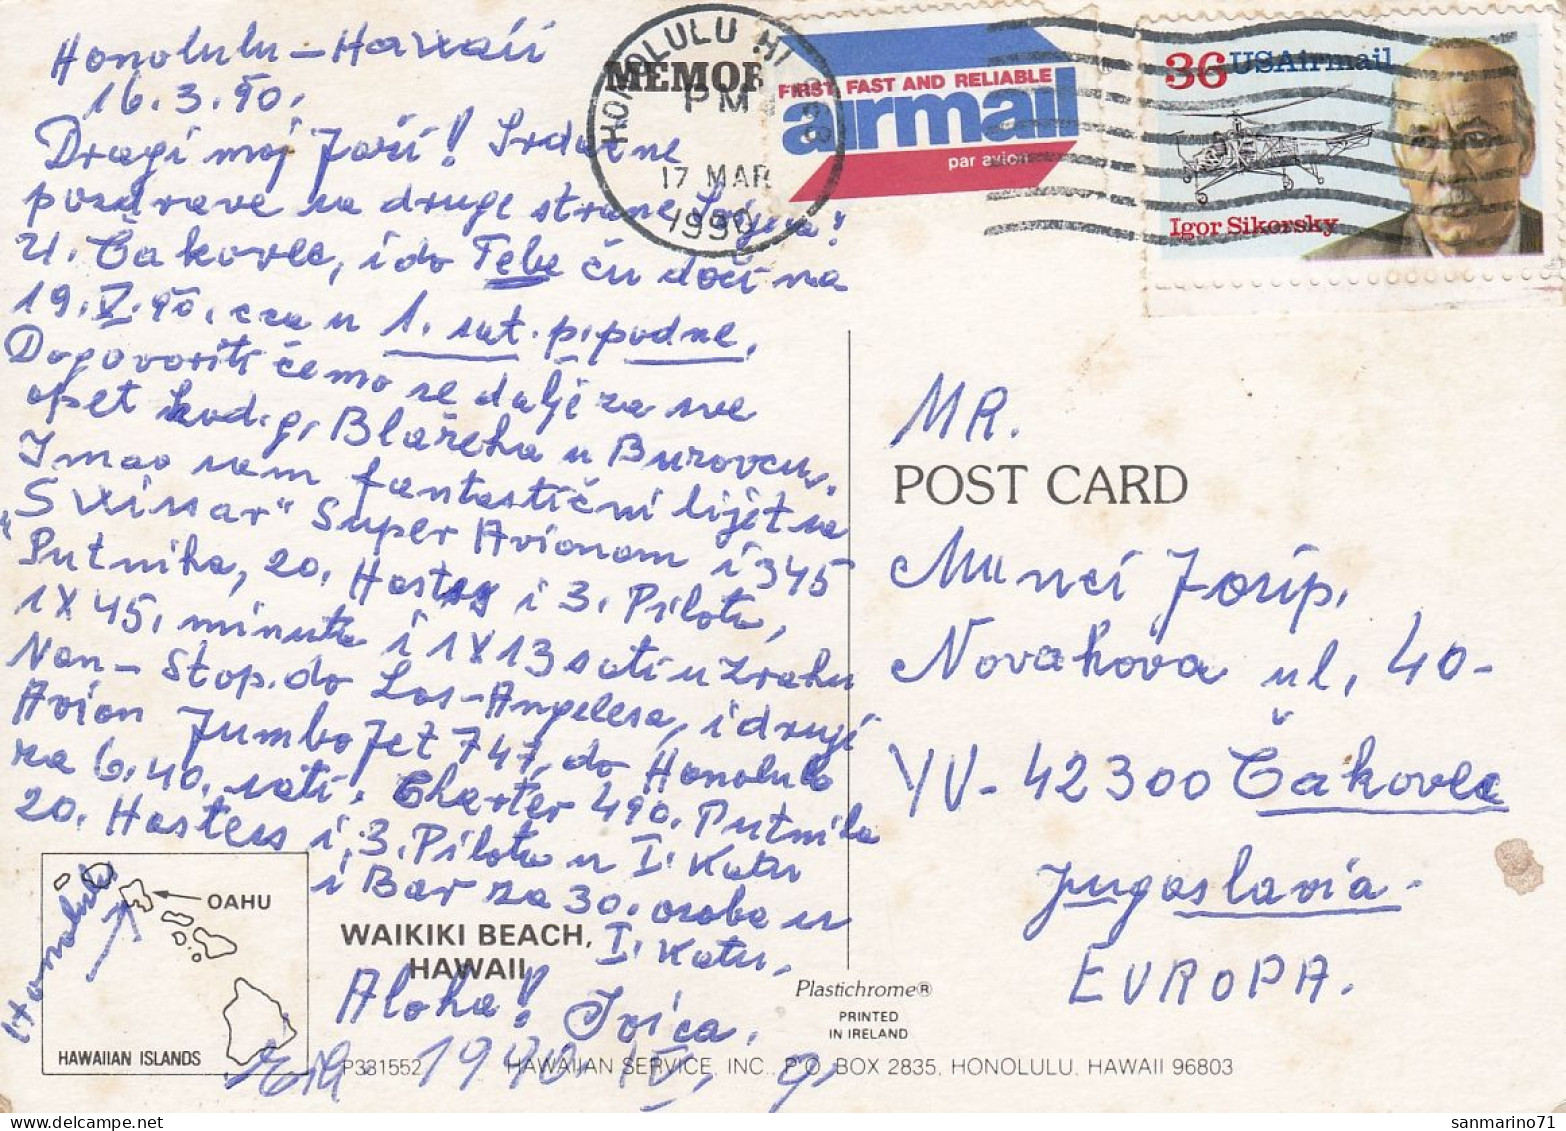 Honolulu – Hawaii
16. 3. 90.
Dragi moj Joži! Srdačne
pozdrave sa druge strane
U Čakovec, i do Tebe ću doći na
19. V. 90. cca u 1. sat. p. podne.
Dogovoriti ćemo se dalje za sve
opet kod g. Blažeka u Buzovcu.
Imao sam fantastični lijet sa
Super Avionom i 345
Putnika, 20. Hostes i 3. Pilota,
1X45. minuta i 1X13 sati u zraku
Non – Stop. do Los-Angelesa, i drugi
Avion Jumbo Jet 747, do Honolulu
za 6,40. sati. Charter 490. Putnika
20. Hostess i 3. Pilota u I. Katu
i Bar za 30. osoba u
I. Katu.
Aloha! Ivica.
1940. IV. g.
Honolulu
OAHU
HAWAIIAN ISLANDS
WAIKIKI BEACH,
HAWAII
P331552
HAWAIIAN SERVICE, INC., P.O. BOX 2835, HONOLULU, HAWAII 96803
Plastichrome®
PRINTED
IN IRELAND
HONOLULU HI
MEMOR
PM
17 MAR
1990
FIRST, FAST AND RELIABLE
airmail
par avion
36 USAirmail
Igor Sikorsky
MR.
POST CARD
Munci Josip.
Novakova ul. 40-
YU-42300 Čakovec
Jugoslavia.
EUROPA.
sanmarino71